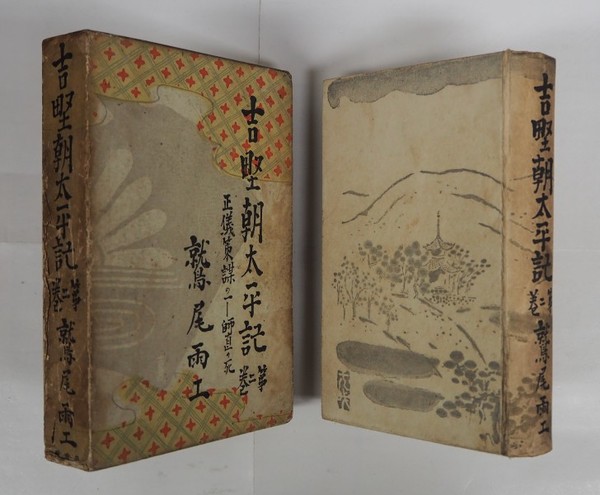 吉野朝太平記
第二巻
鷲尾雨工
吉野朝太平記
第二巻
正儀策謀の一―師直の死
鷲尾雨工
吉野朝太平記
第二巻
鷲尾雨工